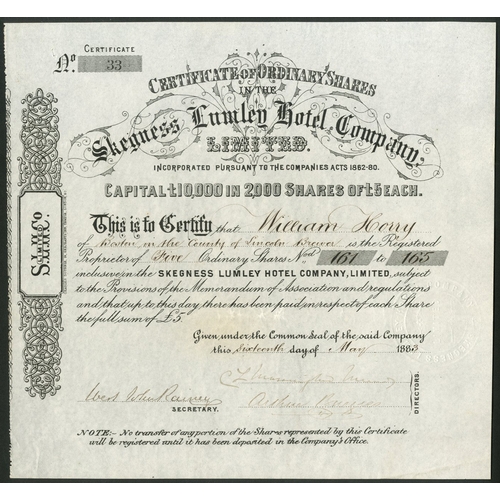 CERTIFICATE
No. 33
CERTIFICATE OF ORDINARY SHARES
IN THE
Skegness Lumley Hotel Company,
LIMITED.
INCORPORATED PURSUANT TO THE COMPANIES ACTS 1862-80.
CAPITAL £10,000 IN 2,000 SHARES OF £5 EACH.
This is to Certify that William Horry
of Boston in the County of Lincoln Brewer is the Registered
Proprietor of Five Ordinary Shares Nos 161 to 165
inclusive in the SKEGNESS LUMLEY HOTEL COMPANY, LIMITED, subject
to the Provisions of the Memorandum of Association and regulations
and that up to this day there has been paid in respect of each Share
the full sum of £5
Given under the Common Seal of the said Company
this Sixteenth day of May 1883
SECRETARY.
DIRECTORS.
NOTE:- No transfer of any portion of the Shares represented by this Certificate
will be registered until it has been deposited in the Company's Office.